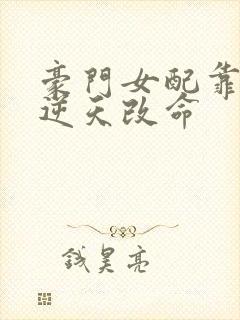 豪門女配靠
逆天改命
錢昊亮